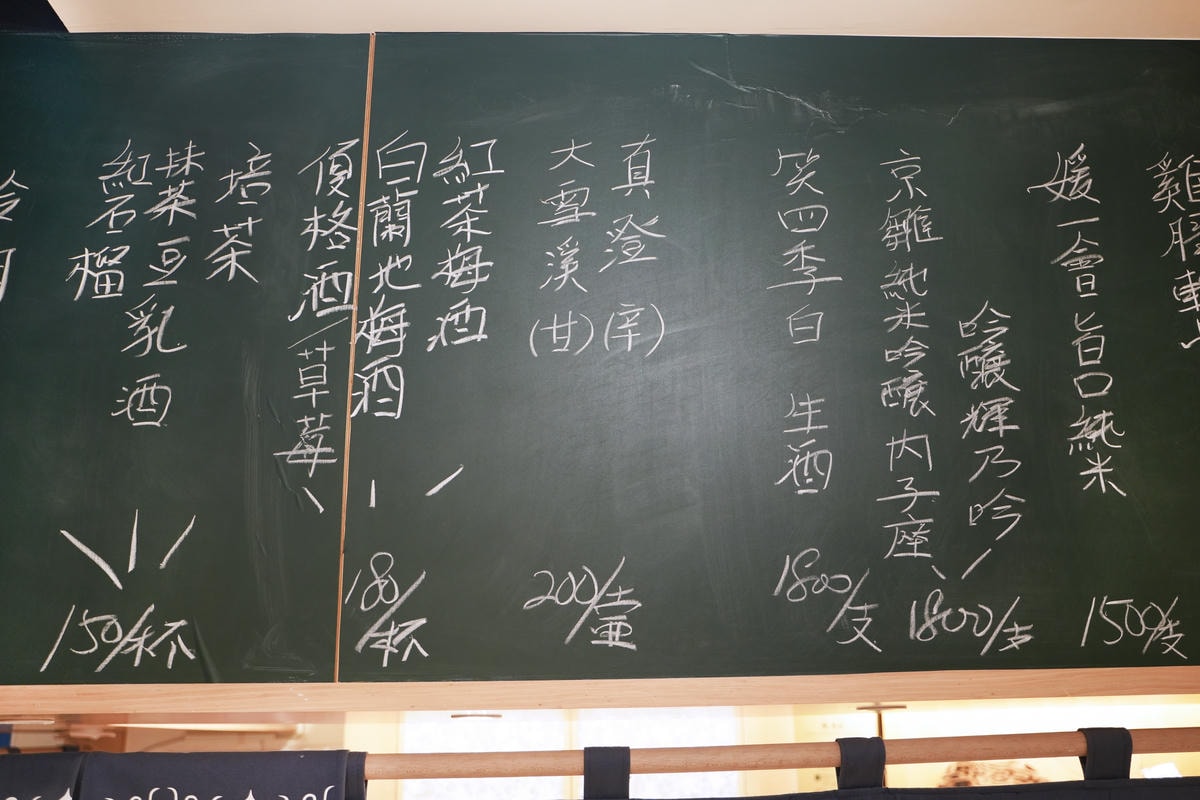 媛一会旨口純米
1500/支
吟醸輝乃吟
京雛純米吟醸内子座
1800/支
笑四季白 生酒
1800/支
真澄(辛)
大雪溪(甘)
200/壺
紅茶梅酒
白蘭地梅酒
優格酒/草莓
180/杯
焙茶
抹茶豆乳酒
紅石榴
150/杯